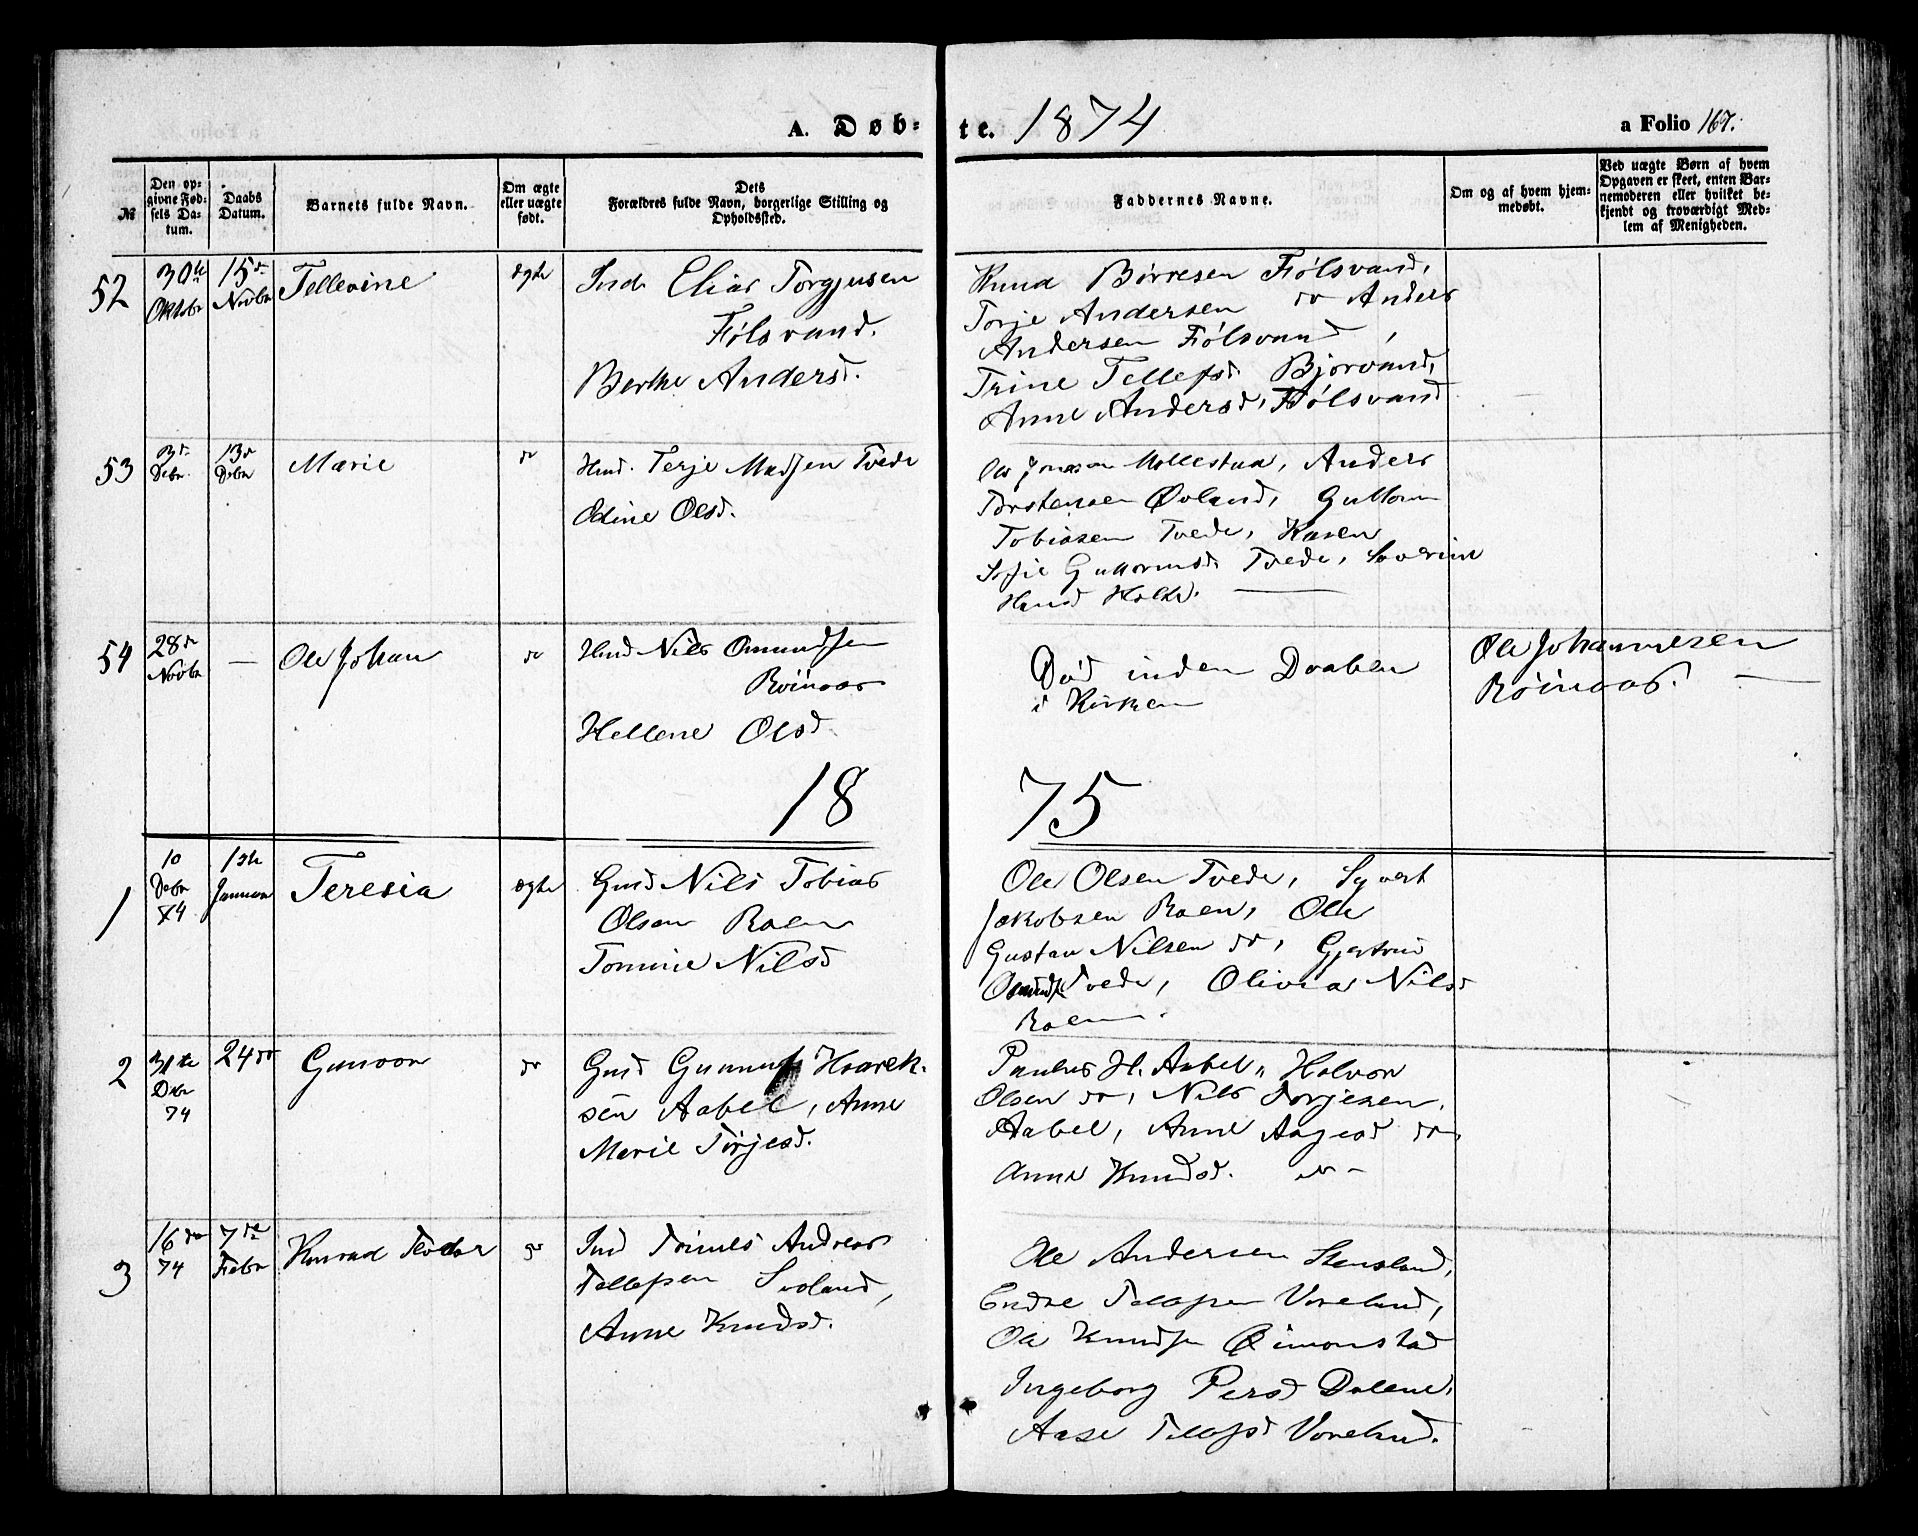 A. Døb-
te. 1874
a Folio 167.
№
Den opgivne Fødsels Datum.
Daabs Datum.
Barnets fulde Navn.
Om ægte eller uægte født.
Dets Forældres fulde Navn, borgerlige Stilling og Opholdssted.
Faddernes Navne.
Om og af hvem hjemmedøbt.
Ved uægte Børn af hvem Opgaven er skeet, enten Barnemoderen eller hvilket bekjendt og troværdigt Medlem af Menigheden.
52
30te
Oktobr
15de
Novbr
Tellevine
ægte
Ind. Elias Torgjusen
Fiølsvand.
Berthe Andersd.
Knud Børresen Fiølsvand,
Torje Andersen do Anders
Andersen Fiølsvand,
Trine Tellefsd. Bjorvand,
Anne Andersd, Fiølsvand
53
3de
Debr
13de
Debr
Marie
do
Hmd. Terje Madsen Tvede
Odine Olsd.
Ole Jensen Mollestad, Anders
Torstensen Øvland, Guttorm
Tobiasen Tvede, Karen
Sofie Guttormsd. Tvede, Severine
Hansd Holte.
54
28de
Novbr
—
Ole Johan
do
Hmd Nils Omundsen
Røinaas
Hellene Olsd.
Død inden Daaben
i Kirken
Ole Johannesen
Røinaas. —
18
75
1
10
Debr
74
1ste
Januar
Teresia
ægte
Gmd Nils Tobias
Olsen Roen
Tomine Nilsd
Ole Olsen Tvede, Syvert
Jakobsen Roen, Ole
Gustav Nilsen do, Gjertrud
Tvede, Olivia Nilsd
Roen.
2
31te
Debr
74
24de
Gunvor
do
Gmd Gunnuf Haavek-
sen Aabel, Anne
Marie Torjesd.
Paulus H. Aabel, Halvor
Olsen do, Nils Torjesen,
Aabel, Anne Aagesd do
Anne Knudsd. do -
3
16de
74
7de
Febr
Konrad Teodor
do
Ind Tønnes Andreas
Tellefsen Svoland,
Anne Knudsd.
Ole Andersen Stensland,
Endre Tellefsen Vorelud,
Ole Knudsen Simonstad
Ingeborg Persd Dalene,
Aase Tellefsd Vorelud.